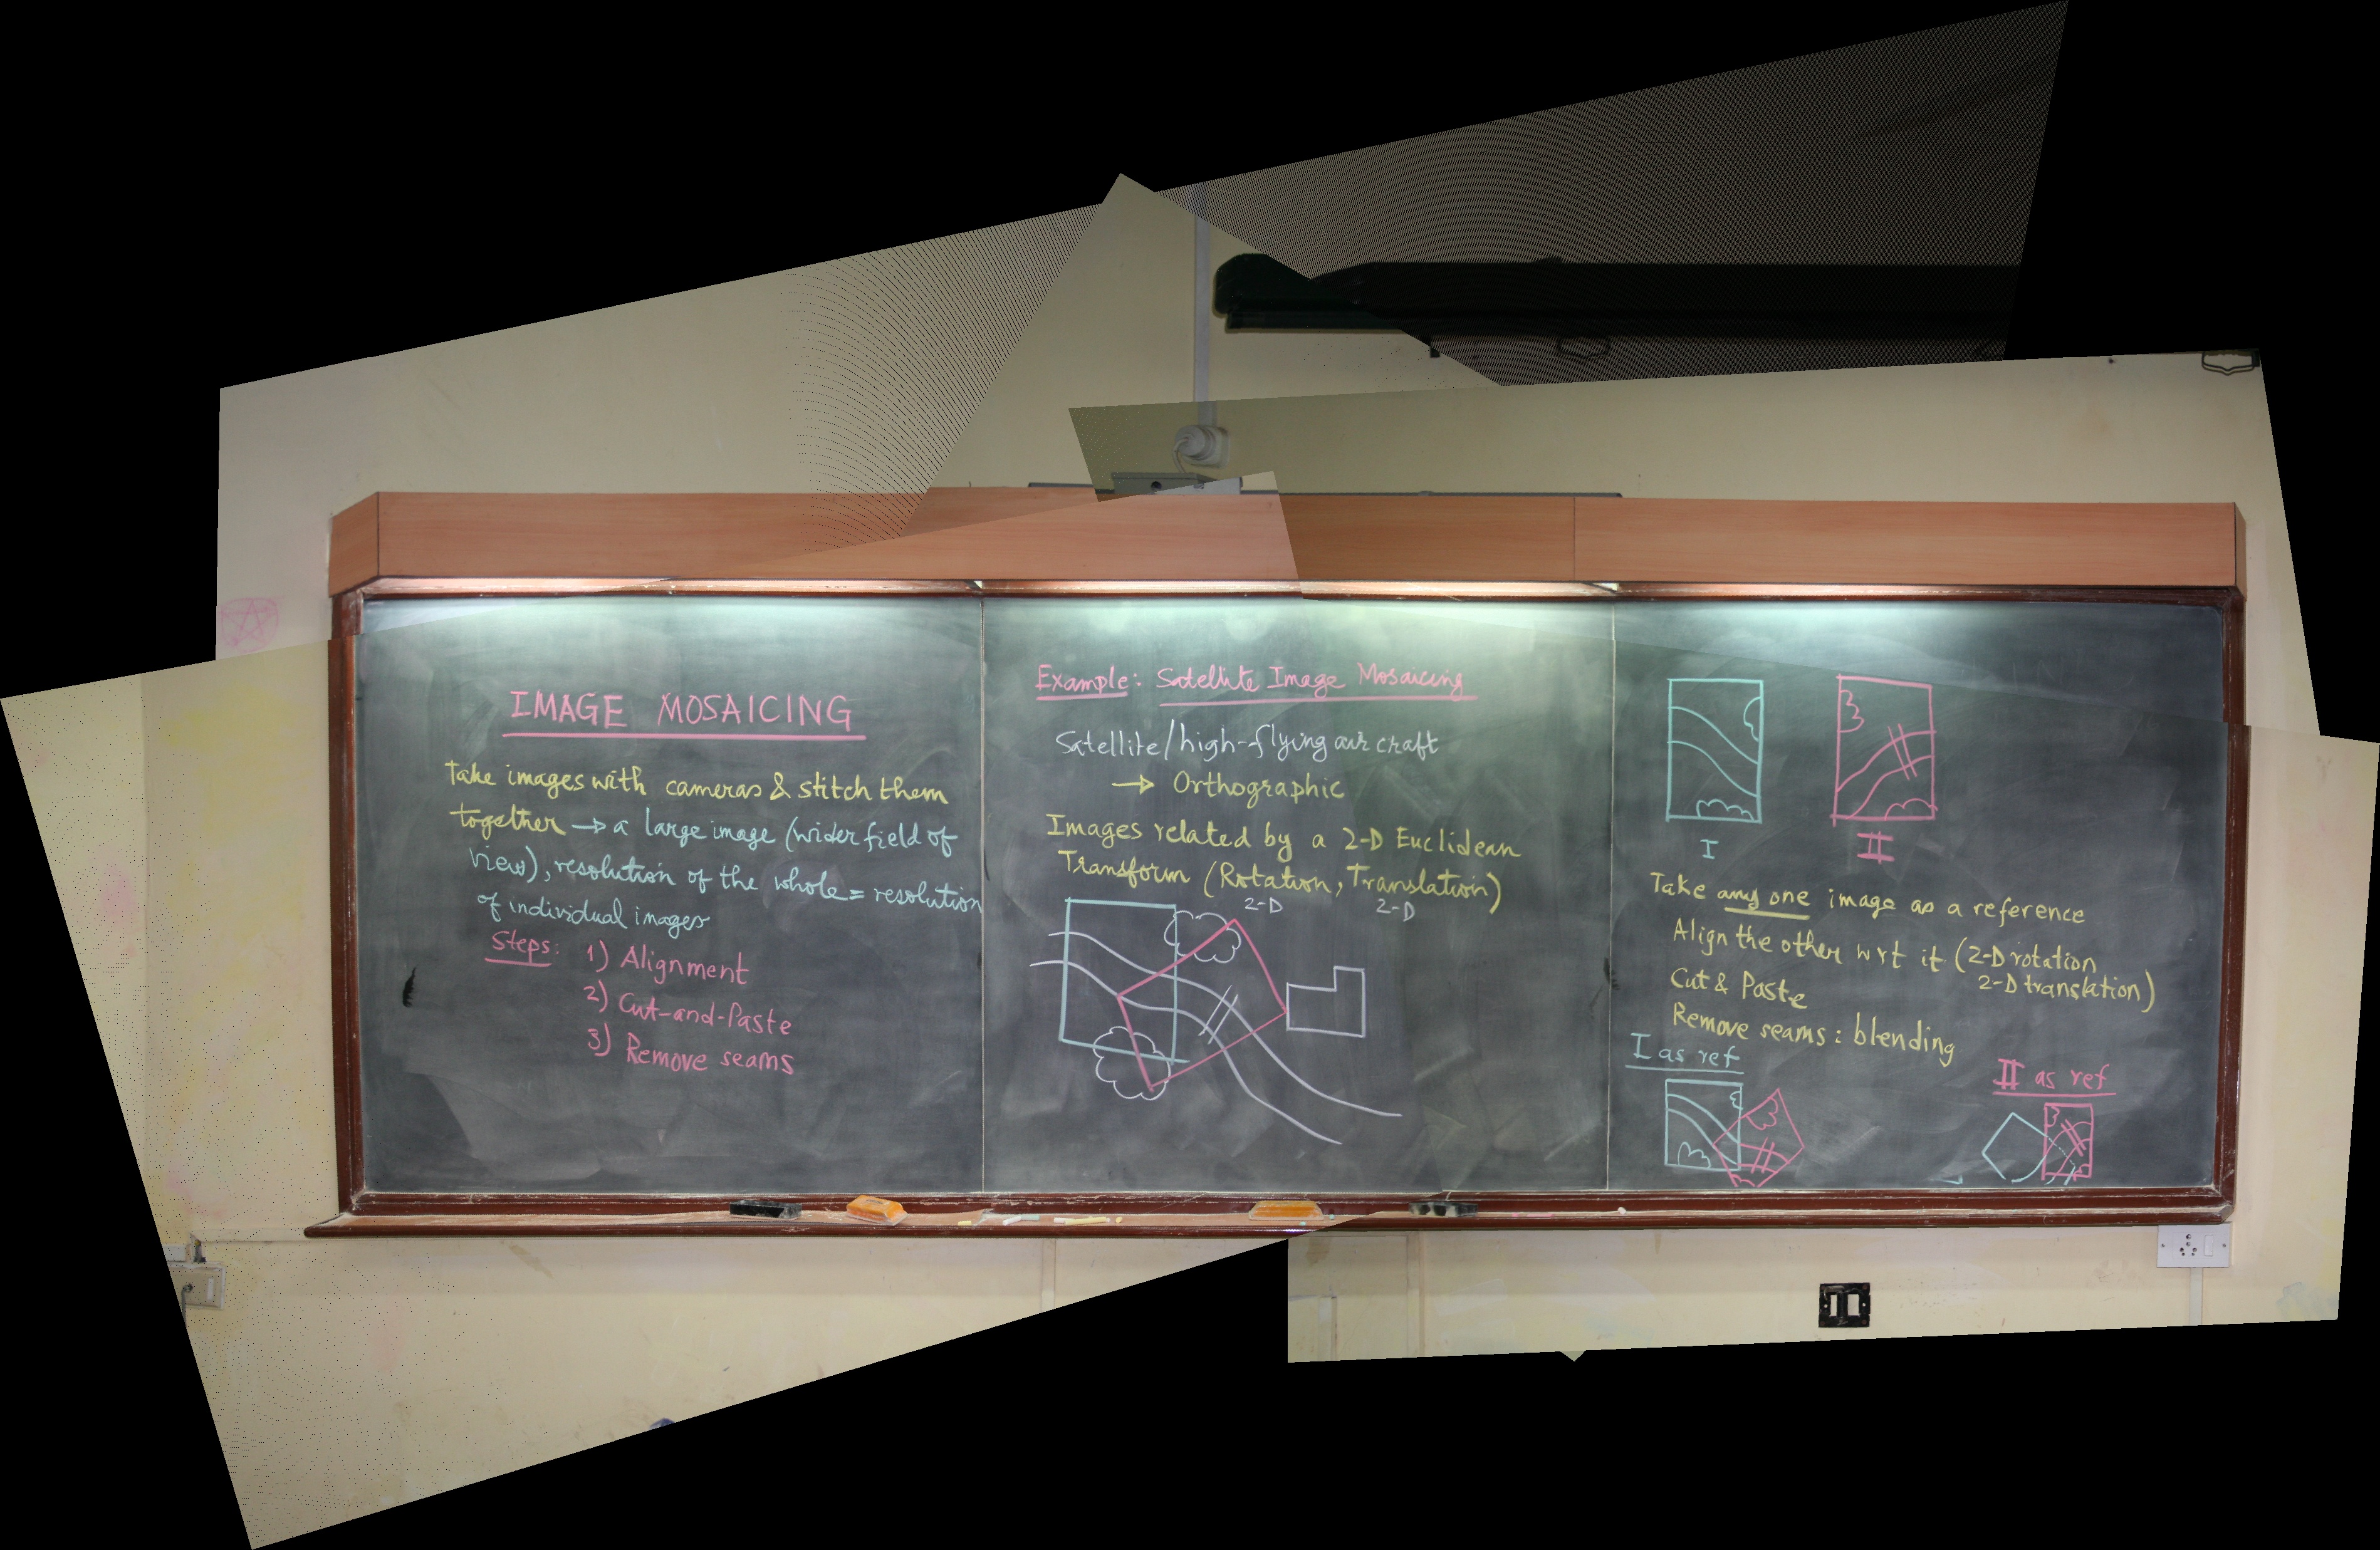 IMAGE MOSAICING
Take images with cameras & stitch them
together → a large image (wider field of
view), resolution of the whole = resolution
of individual images
Steps: 1) Alignment
2) Cut-and-Paste
3) Remove seams
Example: Satellite Image Mosaicing
Satellite/high-flying air craft
→ Orthographic
Images related by a 2-D Euclidean
Transform (Rotation, Translation)
2-D 2-D
I II
Take any one image as a reference
Align the other wrt it (2-D rotation
2-D translation)
Cut & Paste
Remove seams : blending
I as ref
II as ref